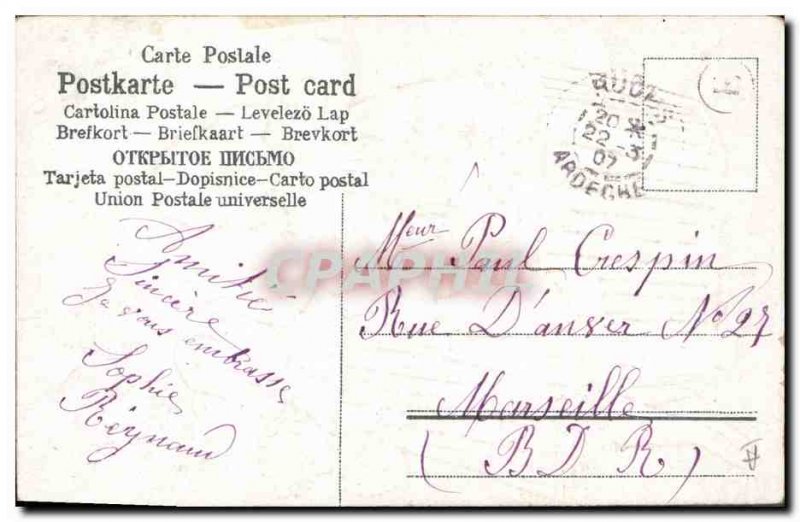 Carte Postale
Postkarte — Post card
Cartolina Postale — Levelező Lap
Brefkort — Briefkaart — Brevkort
ОТКРЫТОЕ ПИСЬМО
Tarjeta postal—Dopisnice—Carto postal
Union Postale universelle
20
22 - 3
07
ARDECHE
Amitié
Sincère
Je vous embrasse
Sophie
Reynaud
Meur Paul Crespin
Rue D'anver No 27
Marseille
(B D R)
CPAPHIL